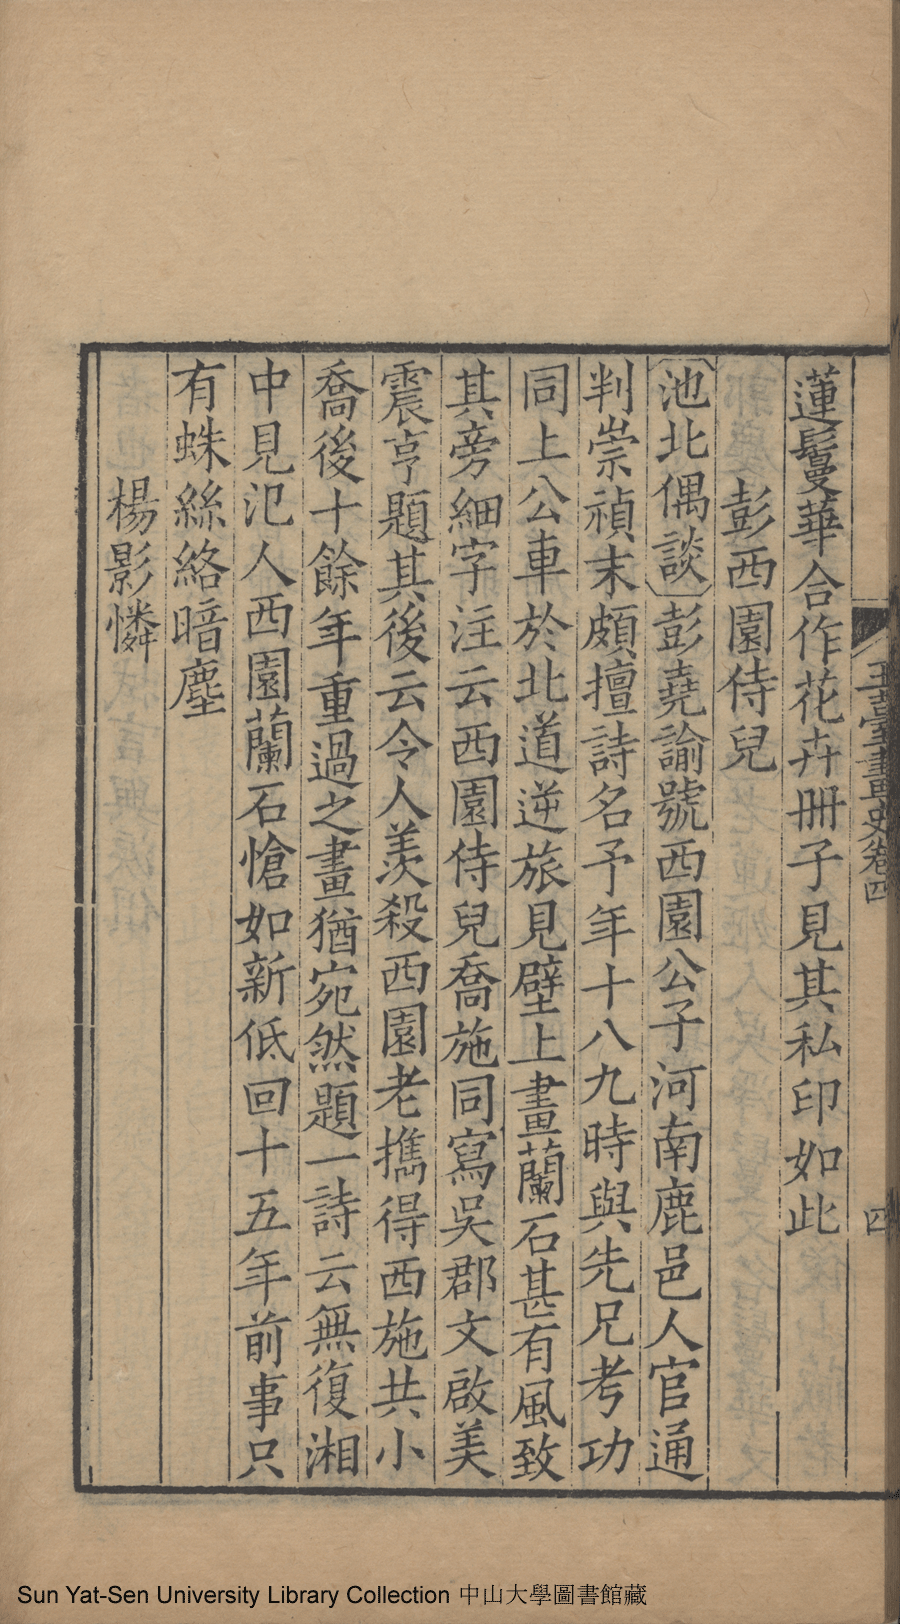 蓮鬘華合作花卉冊子見其私印如此
彭西園侍兒
〔池北偶談〕彭堯諭號西園公子河南鹿邑人官通
判崇禎末頗擅詩名予年十八九時與先兄考功
同上公車於北道逆旅見壁上畫蘭石甚有風致
其旁細字注云西園侍兒喬施同寫吳郡文啟美
震亨題其後云令人羨殺西園老攜得西施共小
喬後十餘年重過之畫猶宛然題一詩云無復湘
中見氾人西園蘭石愴如新低回十五年前事只
有蛛絲絡暗塵
楊影憐
玉臺畫史卷四
四
Sun Yat-Sen University Library Collection 中山大學圖書館藏